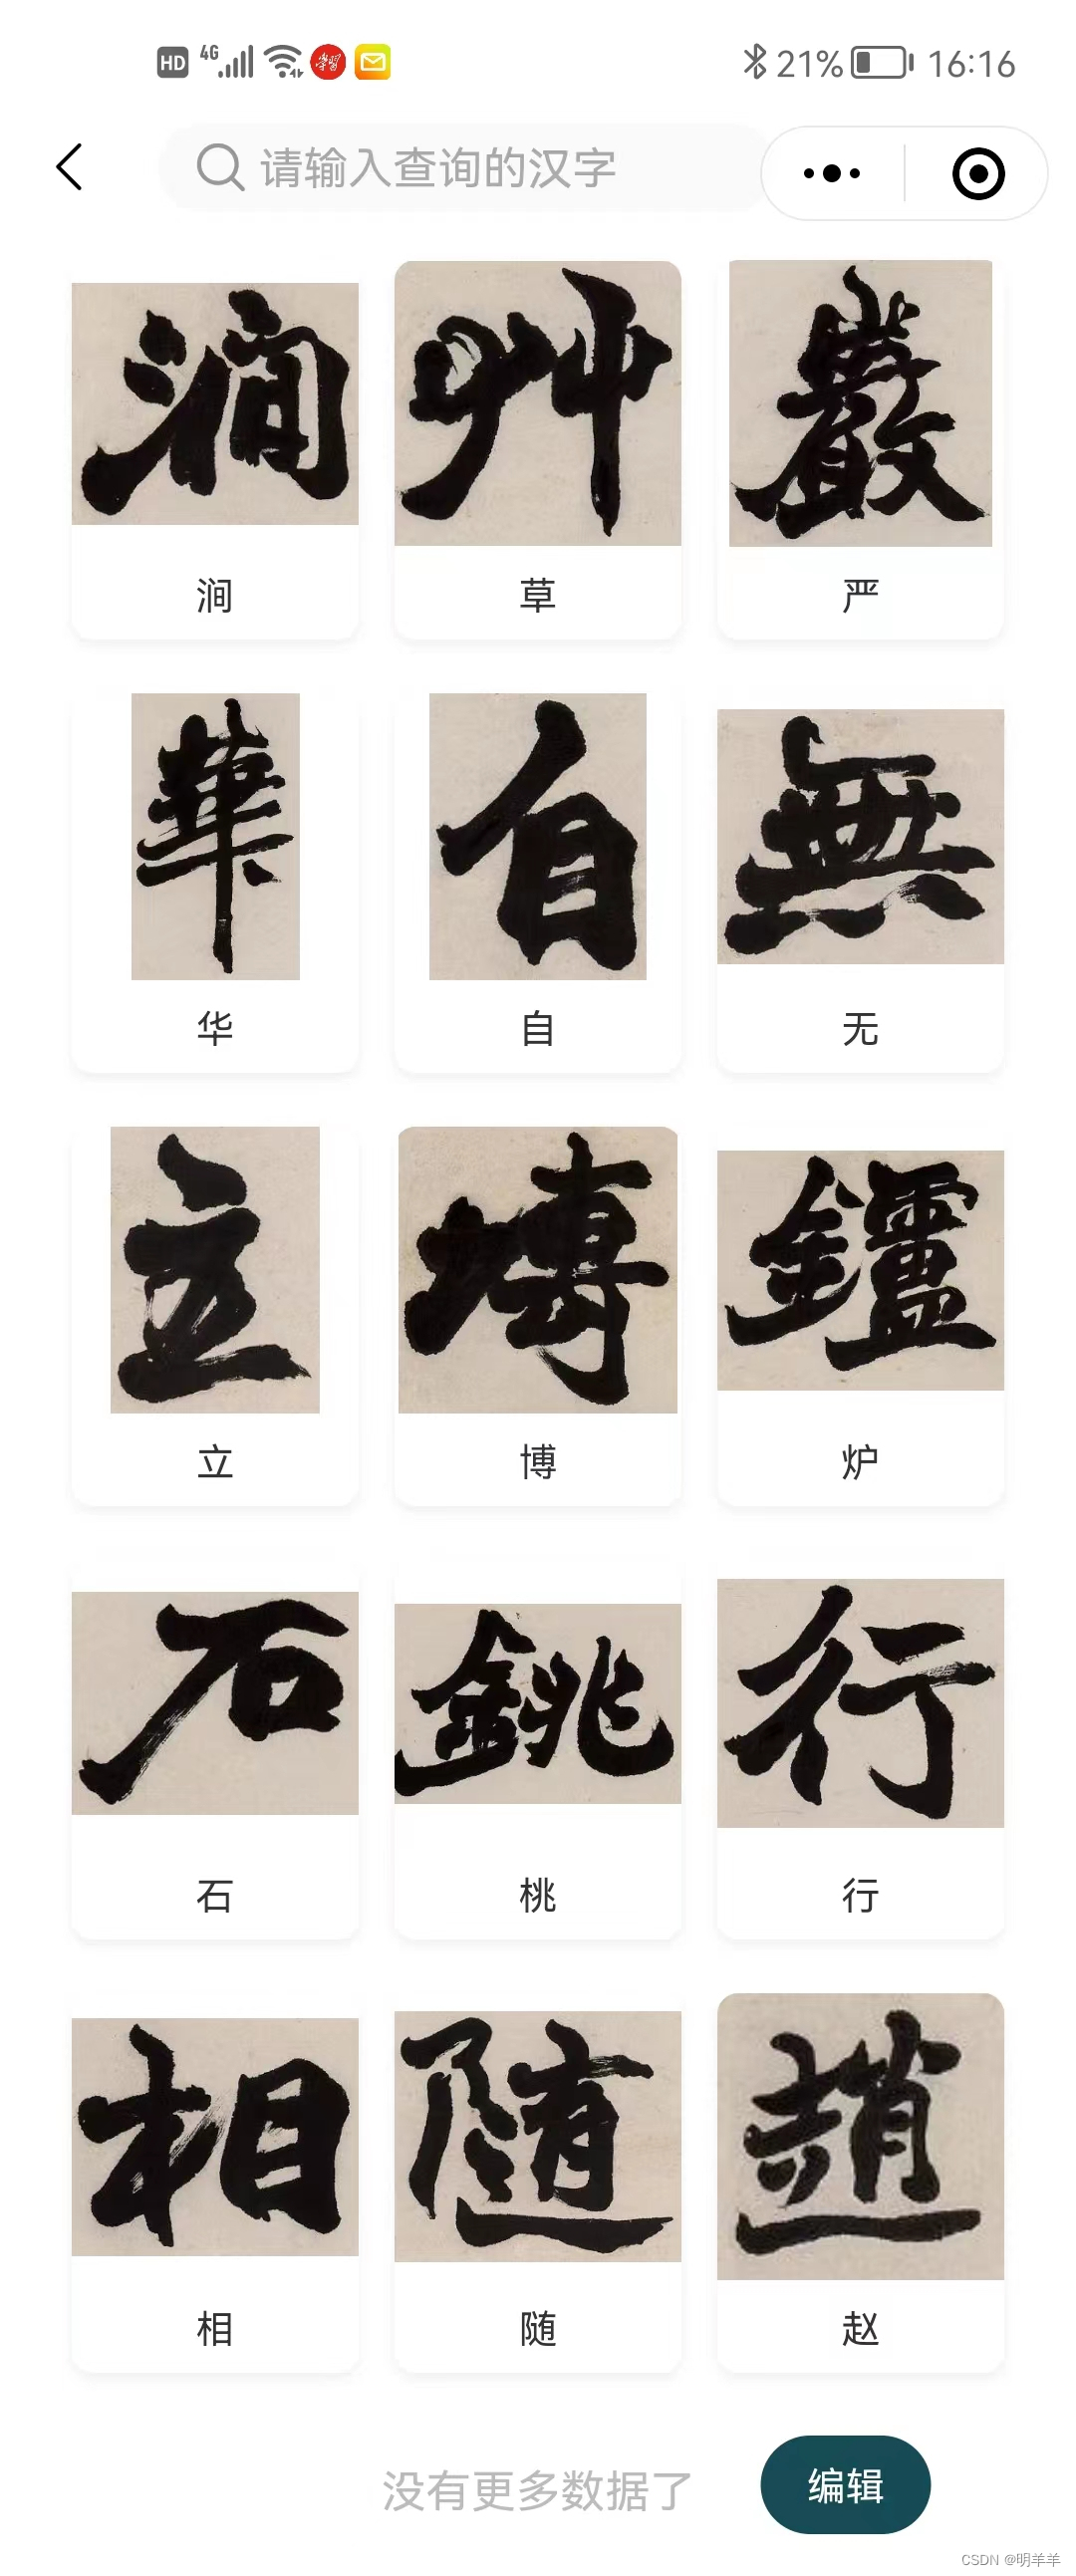 HD 4G 学習 21% 16:16
请输入查询的汉字
澗 艸 嚴
涧 草 严
華 自 無
华 自 无
立 博 鑪
立 博 炉
石 銚 行
石 桃 行
相 随 趙
相 随 赵
没有更多数据了 编辑
CSDN @明羊羊